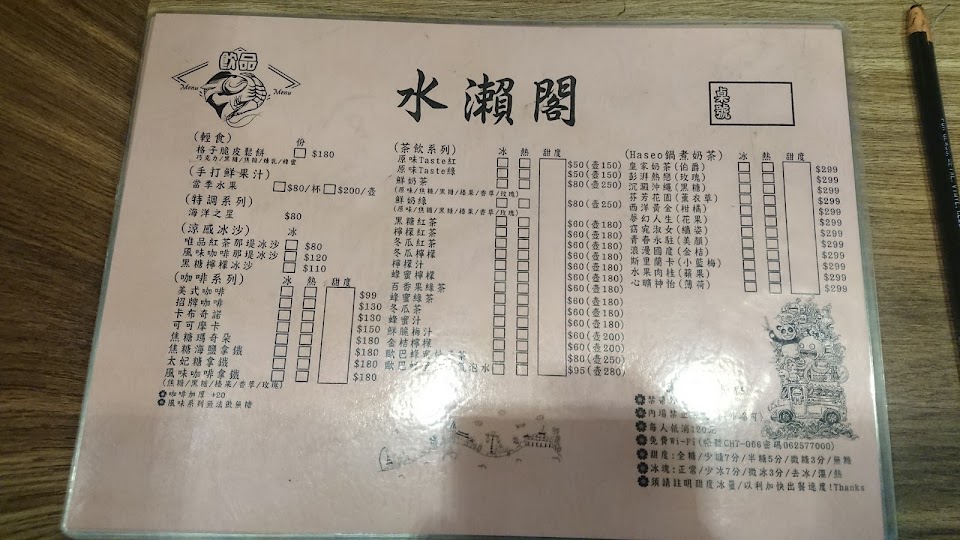 飲品
Menu Menu
水瀨閣
桌號
(輕食) 份
格子脆皮鬆餅 $180
巧克力/黑糖/焦糖/煉乳/蜂蜜
(手打鮮果汁)
當季水果 $80/杯 $200/壺
(特調系列)
海洋之星 $80
(涼感冰沙) 冰
唯品紅茶那堤冰沙 $80
風味咖啡那堤冰沙 $120
黑糖檸檬冰沙 $110
(咖啡系列) 冰 熱 甜度
美式咖啡 $99
招牌咖啡 $130
卡布奇諾 $130
可可摩卡 $150
焦糖瑪奇朵 $180
焦糖海鹽拿鐵 $180
太妃糖拿鐵 $180
風味咖啡拿鐵 $180
(焦糖/黑糖/榛果/香草/玫瑰)
咖啡加厚 +20
風味系列無法做無糖
(茶飲系列) 冰 熱 甜度
原味Taste紅 $50(壺150)
原味Taste綠 $50(壺150)
鮮奶茶 $80(壺250)
(原味/焦糖/黑糖/榛果/香草/玫瑰)
鮮奶綠 $80(壺250)
(原味/焦糖/黑糖/榛果/香草/玫瑰)
黑糖紅茶 $60(壺180)
檸檬紅茶 $60(壺180)
冬瓜紅茶 $60(壺180)
冬瓜檸檬 $60(壺180)
檸檬汁 $60(壺180)
蜂蜜檸檬 $60(壺180)
百香果綠茶 $60(壺180)
蜂蜜綠茶 $60(壺180)
冬瓜茶 $60(壺180)
蜂蜜汁 $60(壺180)
鮮脆梅汁 $60(壺200)
金桔檸檬 $60(壺200)
歐巴蜂蜜柚子茶 $80(壺250)
歐巴 氣泡水 $95(壺280)
(Haseo鍋煮奶茶) 冰 熱 甜度
皇家奶茶(伯爵) $299
澎湃熱戀(玫瑰) $299
沉溺沖繩(黑糖) $299
芬芳花園(薰衣草) $299
西洋黃金(柑橘) $299
夢幻人生(花果) $299
窈窕淑女(纖姿) $299
青春永駐(美顏) $299
浪漫國度(金桔) $299
斯里蘭卡(小藍莓) $299
水果肉桂(蘋果) $299
心曠神怡(薄荷) $299
禁
內場禁
每人低消120元
免費Wi-Fi(帳號CHT-066密碼062577000)
甜度:全糖/少糖7分/半糖5分/微糖3分/無糖
冰塊:正常/少冰7分/微冰3分/去冰/溫/熱
須請註明甜度冰量/以利加快出餐速度!Thanks